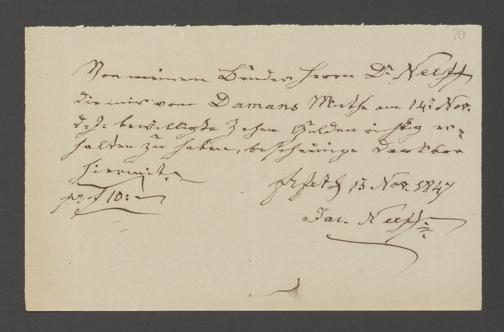 20
Von meinem Bruder Herrn Dr. Neeff
die mir vom Damans am 14t Nov.
d. J. bewilligte Zehen Gulden richtig er-
halten zu haben, bescheinige dankbar
hiermit.
pr f 10:— 15 Nov. 1847
Jac. Neeff